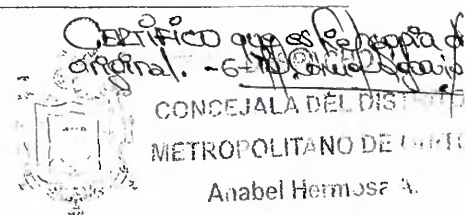 CERTIFICO que es fiel copia d
original. -6-
CONCEJALA DEL DISTRITO
METROPOLITANO DE QUITO
Anabel Hermosa A.